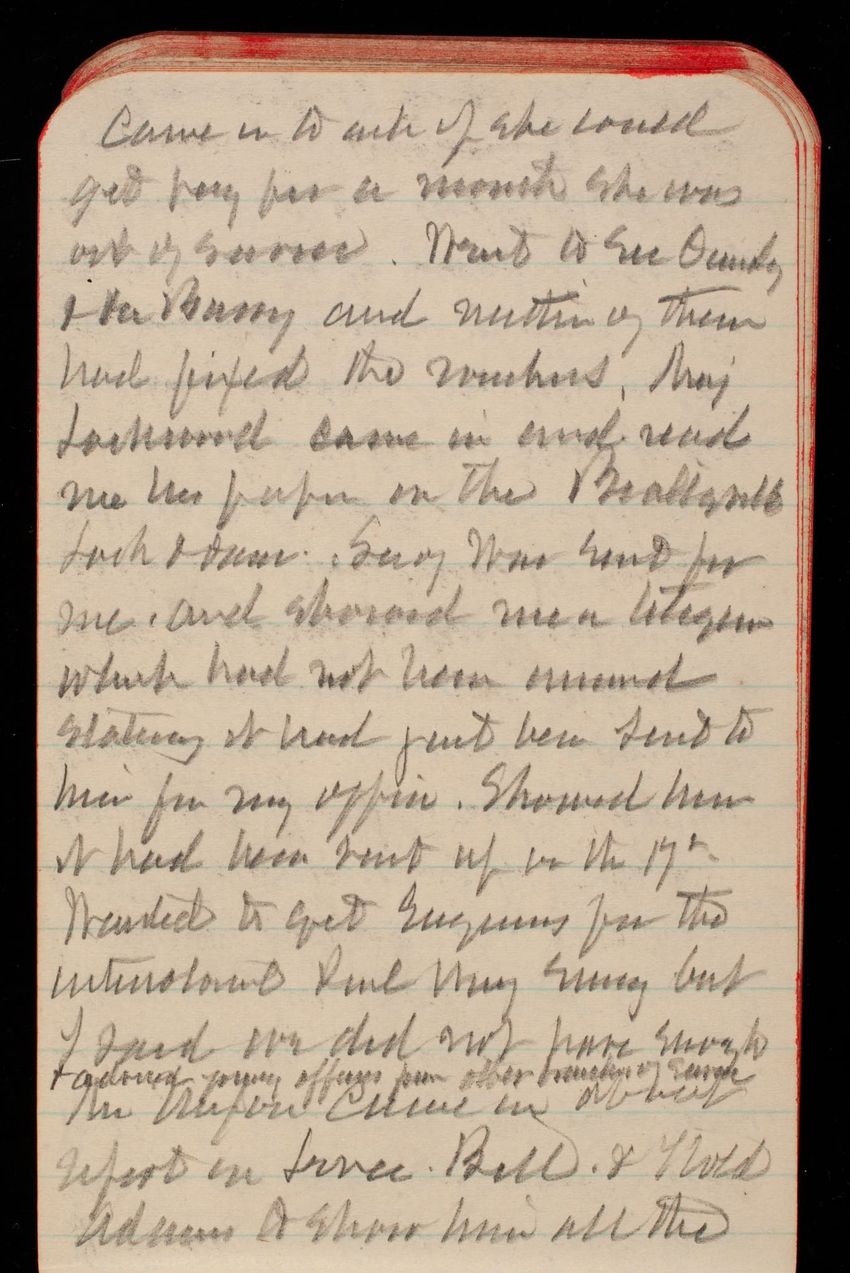 Came in to ask if she could
get pay for a month she was
out of service. Went to see
& and neither of them
had fixed the. Maj
Lockwood came in and read
me his paper on the
Lock & dam. Secy War sent for
me. and showed me a telegram
which had not been answered
stating it had just been sent to
him for my office. Showed him
it had been sent up on the 17th
Wanted to get Engineers for the
survey but
I said we did not have enough
& advised young officers from other branches of Service
Mr came in about
report on Levee Bill. & I told
Adams to show him all the